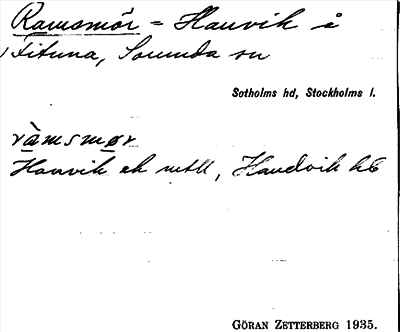 Ramsmör = Hanvik i
Fituna, Sorunda sn
Sotholms hd, Stockholms l.
ràmsmør
Hanvik ek mtll, Handvik hE
GÖRAN ZETTERBERG 1935.